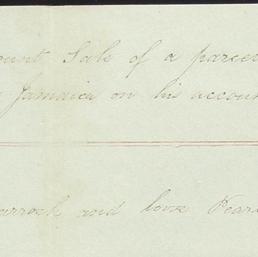 ount Sale of a parcel
Jamaica on his accoun
and love Pear